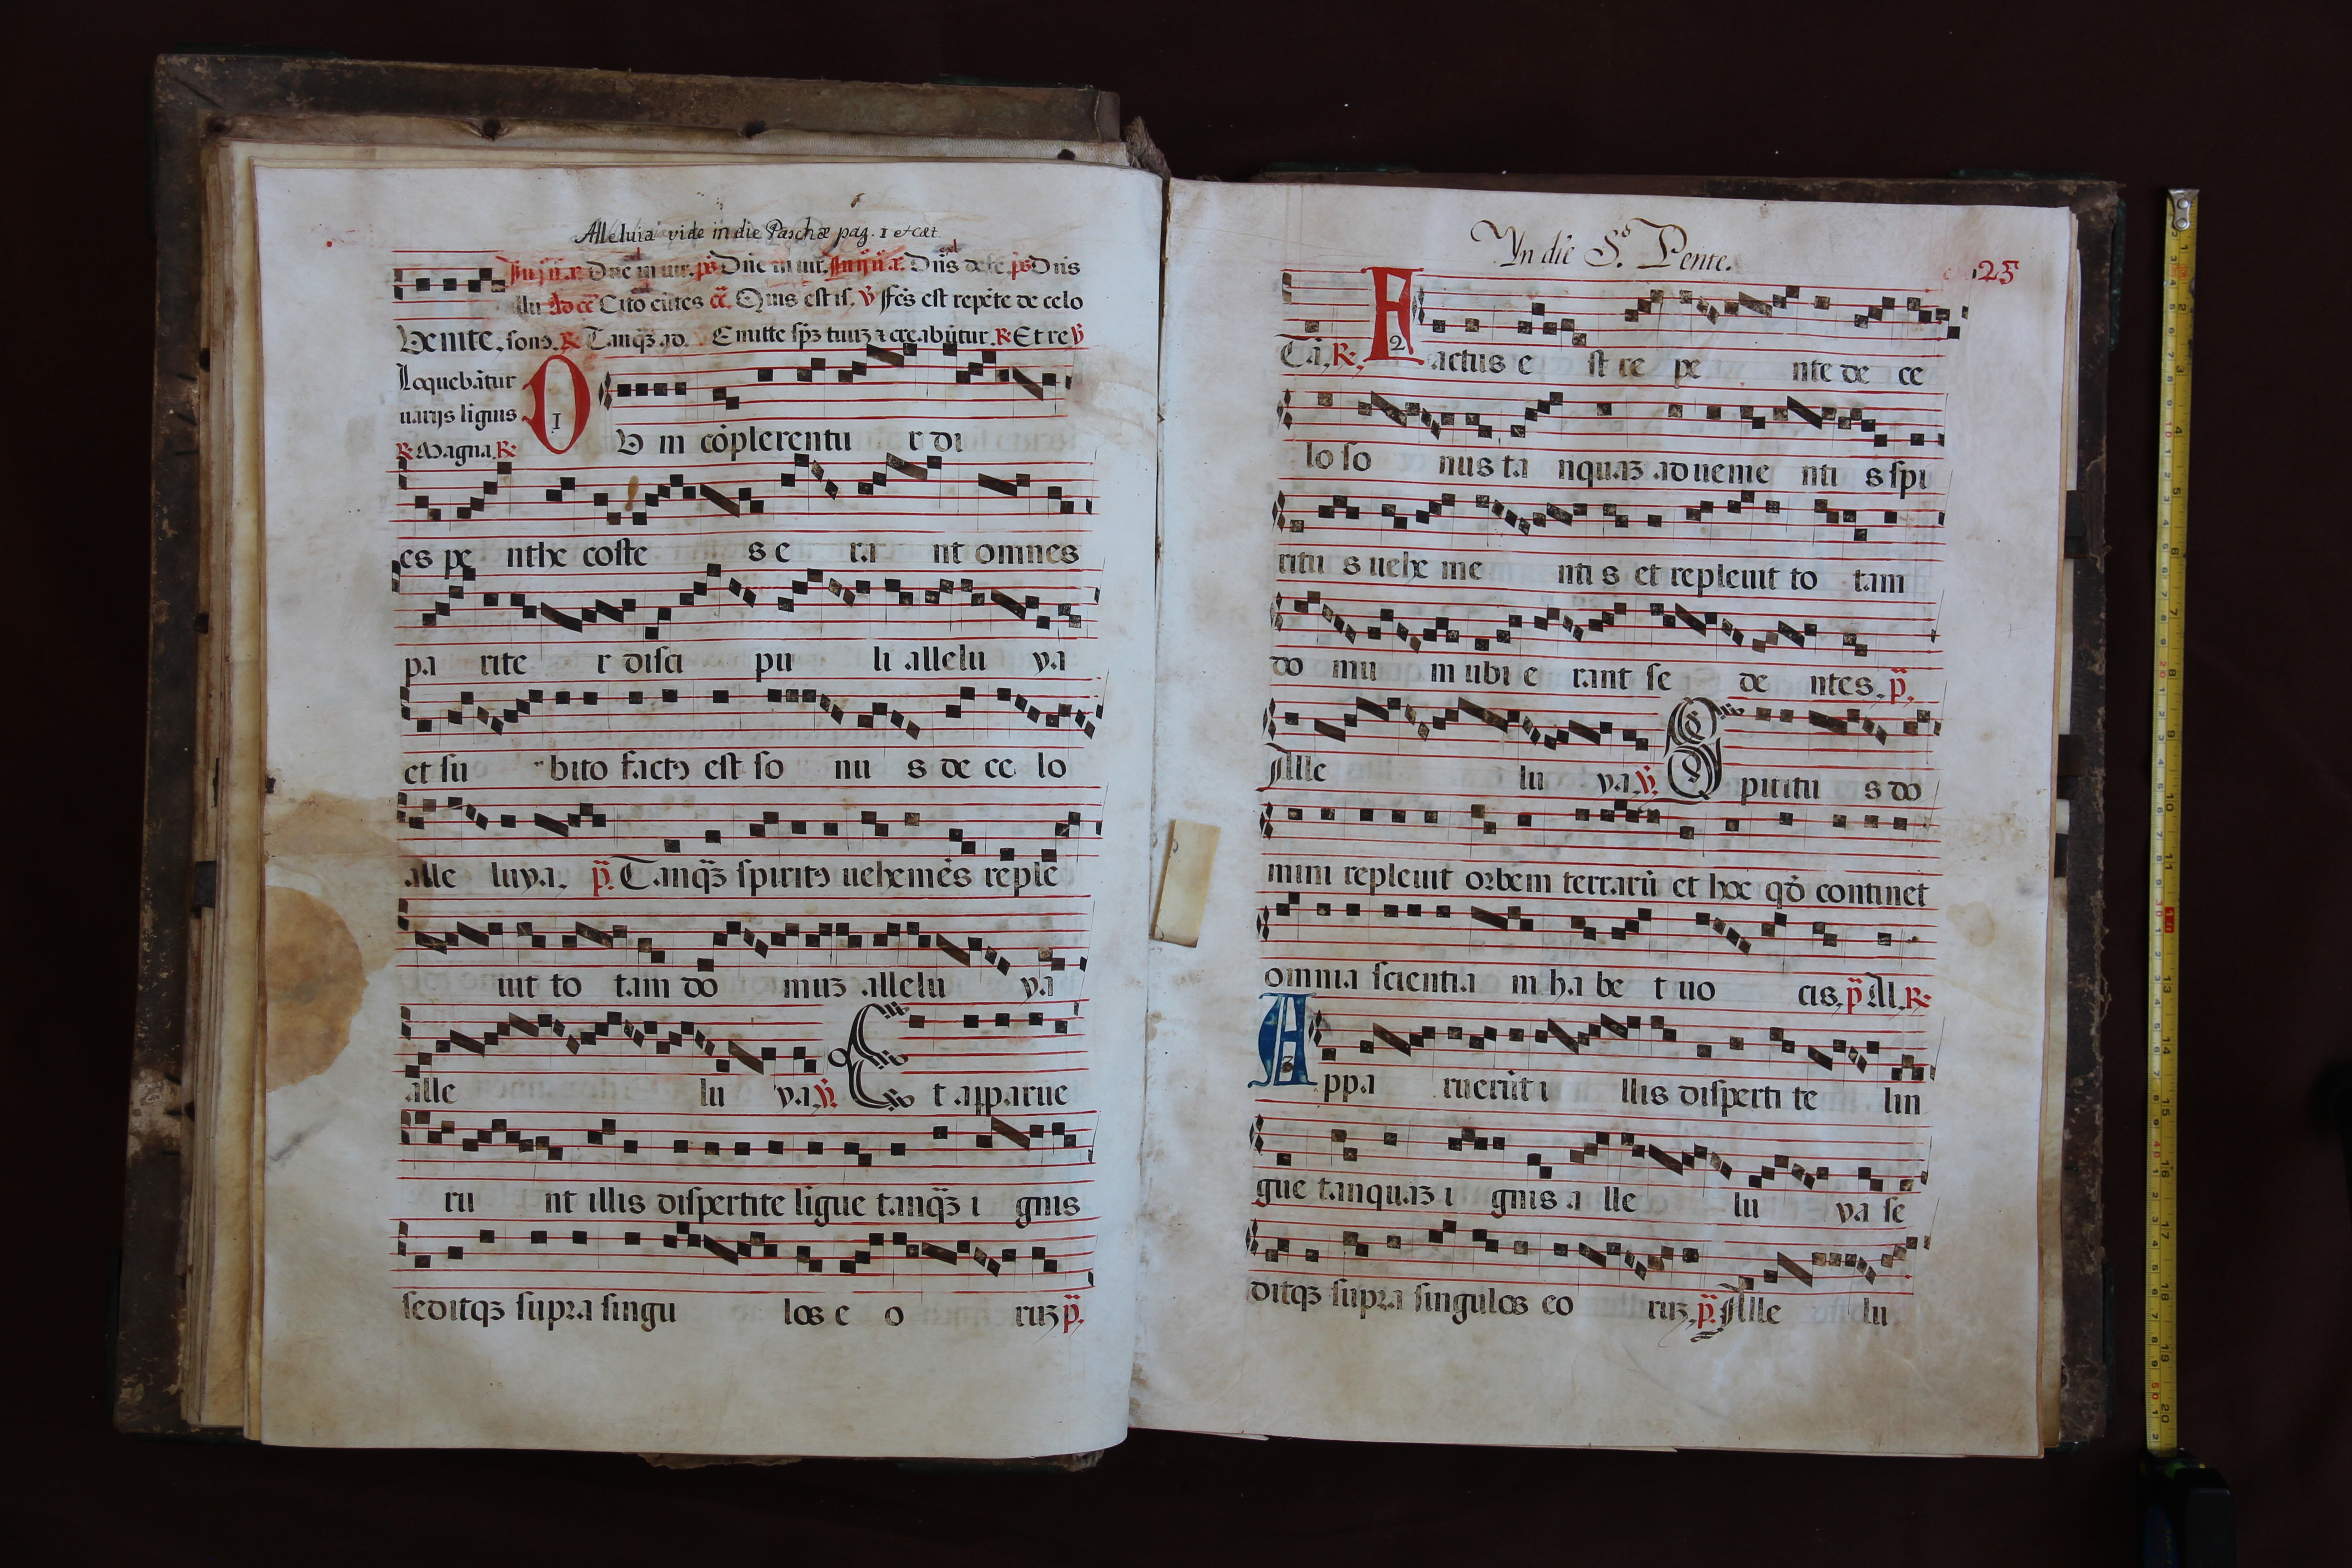 Alleluia vide in die Paschæ pag. 1 etcæt.
Venite. sono. ℟. Tanqȝ ad. Emitte spȝ tuuȝ ⁊ creabūtur. ℟. Et re ℣
Loquebātur
uarijs liguis
℟. Magna. ℟.
1
D V m cōplerentu r di
es pe nthe coste s e ra nt omnes
pa rite r disci pu li allelu ya
et su bito factꝰ est so nu s de ce lo
alle luya, p̄. Tanqȝ spiritꝰ uehemēs reple
uit to tam do muȝ allelu ya
alle lu ya. ℣. E t apparue
ru nt illis dispertite ligue tanqȝ i gnis
seditqȝ supra singu los e o ruȝ p̄.
Yn die S.º Pente.
125
Tā, ℟. F actus e st re pe nte de ce
2
lo so nus ta nquaȝ adueme nti s spi
ritu s uehe me nti s et repleuit to tam
do mu m ubi e rant se de ntes, p̄,
Alle lu ya. ℣. S piritu s do
mini repleuit orbem terrarū et hoc qō continet
omnia scientia m ha be t uo cis, p̄ Al. ℟.
3
A ppa ruerūt i llis disperti te lin
gue tanquaȝ i gnis a lle lu ya se
ditqȝ supra singulos eo ruȝ, p̄. Alle lu